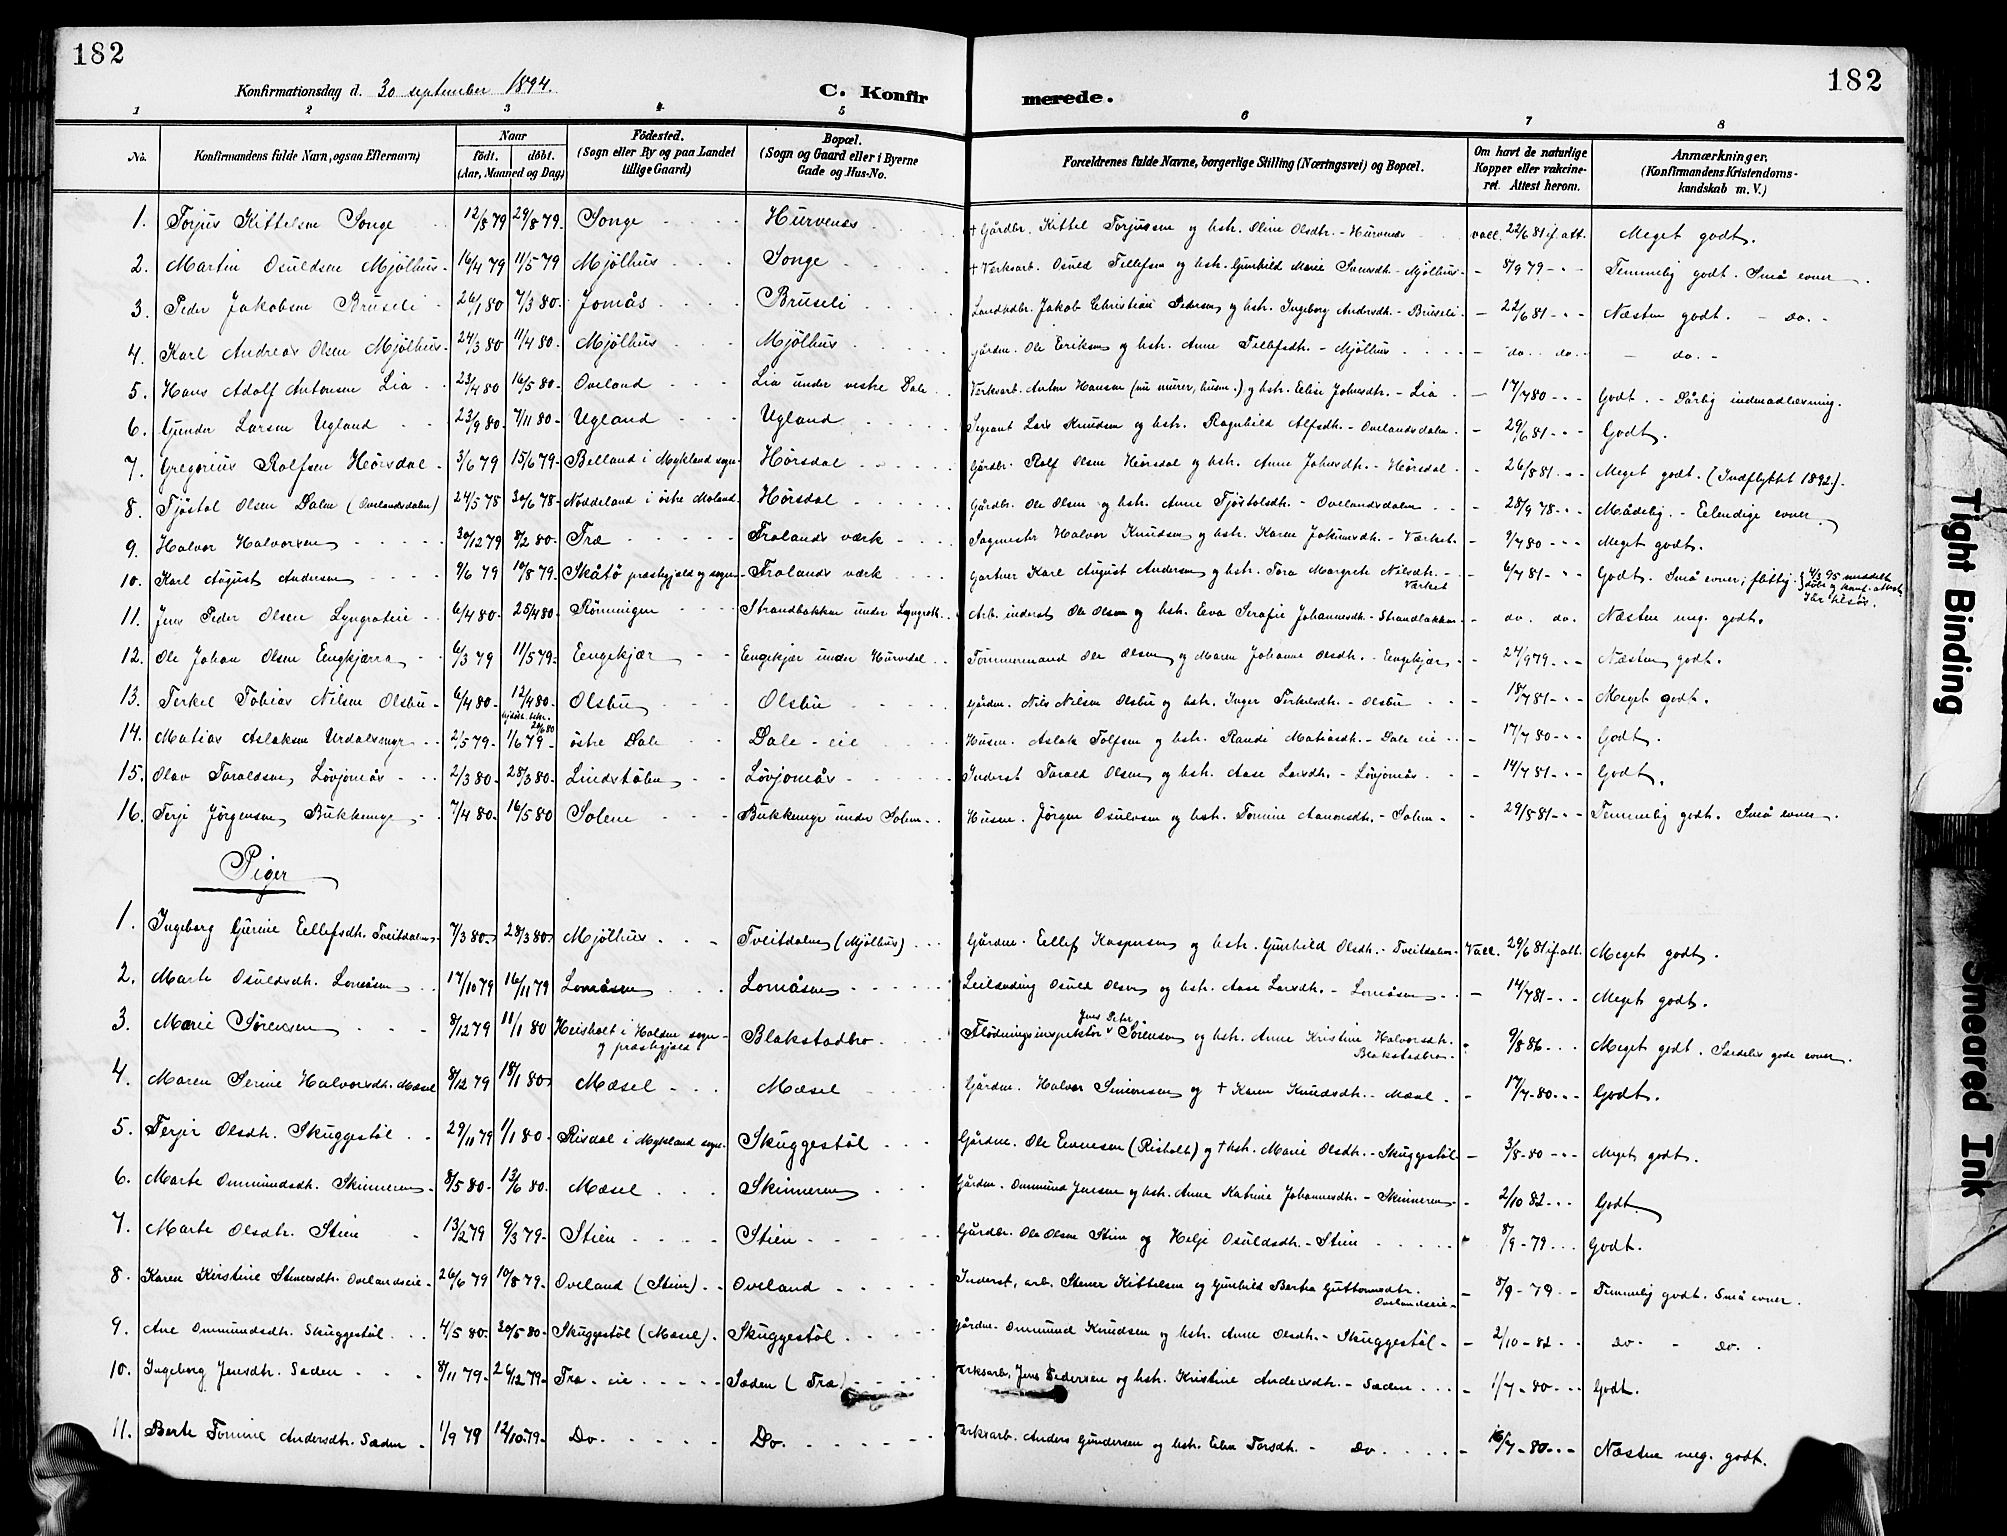 182
182
Konfirmationsdag d. 30 september 1894.
C. Konfirmerede.
1 2 3 4 5 6 7 8
No. Konfirmandens fulde Navn, ogsaa Efternavn) Naar født. døbt. (Aar, Maaned og Dag) Fødested. (Sogn eller By og paa Landet tillige Gaard) Bopæl. (Sogn og Gaard eller i Byerne Gade og Hus-No. Forældrenes fulde Navne, borgerlige Stilling (Næringsvei) og Bopæl. Om havt de naturlige Kopper eller vakcineret. Attest herom. Anmærkninger. (Konfirmandens Kristendomskundskab m. V.)
1. Torjus Kittelsen Songe 12/8 79 29/8 79. Songe Hurvenes + Gårdbr. Kittel Torjussen og hstr. Oline Olsdtr. - Hurvenes vacc. 22/6 81 if. att. Meget godt.
2. Martin Osuldsen Mjølhus 16/4 79 11/5 79 Mjølhus Songe + Værksarb. Osuld Tellefsen og hstr. Gunhild Marie - Mjølhus - 8/9 79 - Temmelig godt. Små evner.
3. Peder Jakobsen Bruseli 26/1 80 7/3 80. Jomås Bruseli Landhdlr. Jakob Christian Pedersen og hstr. Ingeborg Andersdtr. - Bruseli - 22/6 81 - Næsten godt. - do. -
4. Karl Andreas Olsen Mjølhus 24/3 80 11/4 80. Mjølhus Mjølhus Gårdm. Ole Eriksen og hstr. Anne Tellefsdtr. - Mjølhus - do. do. - do. -
5. Hans Adolf Antonsen Lia 23/4 80 16/5 80. Oveland Lia under vestre Dale Værksarb. Anton Hansen (nu murer, husm.) og hstr. Elise Johnsdtr. - Lia - 17/7 80 - Godt. - Dårlig indenadlæsning.
6. Gunder Larsen Ugland 23/9 80. 7/11 80. Ugland Ugland Sergeant Lars Knudsen og hstr. Ragnhild Alfsdtr. - Ovelandsdalen - 29/6 81 - Godt.
7. Gregorius Rolfsen Hørsdal 3/6 79 15/6 79. Belland i Mykland sogn Hørsdal Gårdbr. Rolf Olsen Hørsdal og hstr. Anne Johnsdtr. - Hørsdal - 26/8 81 - Meget godt (Indflyttet 1892).
8. Tjøstol Olsen Dalen (Ovelandsdalen) 24/5 78 30/6 78. Noddeland i østre Moland Hørsdal Gårdbr. Ole Olsen og hstr. Anne Tjøstolsdtr. - Ovelandsdalen - 28/9 78 - Mådelig. - Elendige evner.
9. Halvor Halvorsen 30/12 79 8/2 80. Træ Frolands værk Sagmester Halvor Knudsen og hstr. Karen Jokumsdtr. - Værket - 9/7 80 - Meget godt.
10. Karl August Andersen 9/6 79 10/8 79. Skåtø præstegjeld og sogn Frolands værk Gartner Karl August Andersen og hstr. Tora Margrete Nilsdtr. - Værket 6/7 81 - Godt. Små evner; flittig. 4/3 95 meddelt døbe og konf. attest
11. Jens Peder Olsen Lyngroteie 6/4 80 - 25/4 80. Rønningen Strandbakken under Lyngrot Arb. inderst Ole Olsen og hstr. Eva Serafie Johannesdtr. - Strandbakken do. do. Næsten meg. godt.
12. Ole Johan Olsen Engekjærra 6/3 79 11/5 79. Engekjær Engekjær under Hurvedal Tømmermand Ole Olsen og Maren Johanne Olsdtr. - Engekjær - 24/9 79 - Næsten godt.
13. Terkel Tobias Nilsen Olsbu 6/4 80 - 12/4 80. Olsbu Olsbu Gårdm. Nils Nilsen Olsbu og hstr. Inger Terkelsdtr. - Olsbu - 18/7 81 - Meget godt.
14. Matias Aslaksen Urdalsmyr 2/5 79. 1/6 79 østre Dale Dale - eie Husm. Aslak Tolfsen og hstr. Randi Matiasdtr. - Dale eie 17/7 80 - Godt.
15. Olav Taraldsen Løvjomås 2/3 80. 28/3 80. Lindstølen Løvjomås Inderst Tarald Olsen og hstr. Aase Larsdtr. - Løvjomås 14/7 81 - Godt.
16. Terje Jørgensen Bukkemyr 7/4 80. 16/5 80 Solem Bukkemyr under Solem Husm. Jørgen Osulvsen og hstr. Tomine Aanonsdtr. - Solem - 29/8 81 - Temmelig godt. Små evner.
Piger
1. Ingeborg Gurine Ellefsdtr. Tveitdalen 7/3 80 28/3 80 Mjølhus Tveitdalen (Mjølhus) Gårdm. Ellef Kaspersen og hstr. Gunhild Olsdtr. - Tveitdalen - Vacc. 29/6 81 if. att. Meget godt.
2. Marte Osuldsdtr. Lomåsen 17/10 79 16/11 79 Lomåsen Lomåsen Leilænding Osuld Olsen og hstr. Aase Larsdtr. - Lomåsen - 14/7 81 - Meget godt.
3. Marie Sørensen 8/12 79 11/1 80 Heisholt i Holden sogn og præstegjeld Blakstadbro Flødningsinspektør Jens Peter Sørensen og hstr. Anne Kristine Halvorsdtr. Blakstadbro 9/8 86 - Meget godt. Særdeles gode evner.
4. Maren Serine Halvorsdtr. Mæsel 8/12 79 18/1 80 Mæsel Mæsel Gårdm. Halvor Simonsen og + Karen Knudsdtr. - Mæsel - 17/7 - 80 - Godt.
5. Terjer Olsdtr. Skuggestøl 29/11 79 1/1 80. Risdal i Mykland sogn Skuggestøl Gårdm. Ole Evensen (Risholt) og + hstr. Marie Olsdtr. - Skuggestøl - 3/8 - 80 Meget godt.
6. Marte Ommundsdtr. Skinneren 8/5 80 - 13/6 80. Mæsel Skinneren Gårdm. Ommund Jensen og hstr. Anne Katrine Johannesdtr. - Skinneren - 2/10 82 - Godt.
7. Marte Olsdtr. Stien 13/2 79 9/3 79 - Stien Stien Gårdbr. Ole Olsen Stien og Helje Osuldsdtr. - Stien 8/9 - 79 - Godt.
8. Karen Kirstine Stenersdtr. Ovelandseie 26/6 79 10/8 79. Oveland (Stien) Oveland Inderst, arb. Stener Kittelsen og Gunhild Bertea Guttormsdtr. Ovelandseie - 8/9 - 79 - Temmelig godt. Små evner.
9. Ane Ommundsdtr. Skuggestøl 4/5 80. 20/5 80. Skuggestøl (Mæsel) Skuggestøl Gårdm. Ommund Knudsen og hstr. Anne Olsdtr. - Skuggestøl - 2/10 - 82 - Do - Do.
10. Ingeborg Jensdtr. Sæden 8/11 79 - 26/12 79. Træ - eie Sæden (Træ) Værksarb. Jens Pedersen og hstr. Kristine Andersdtr. - Sæden - 1/7 - 80 - Godt.
11. Berte Tomine Andersdtr. Sæden 1/9 79 12/10 79. Do. Do. Værksarb. Anders Gundersen og hstr. Elen Torsdtr. - Do - 16/7 - 80 - Næsten meg. godt.
Tight Binding
Smeared Ink